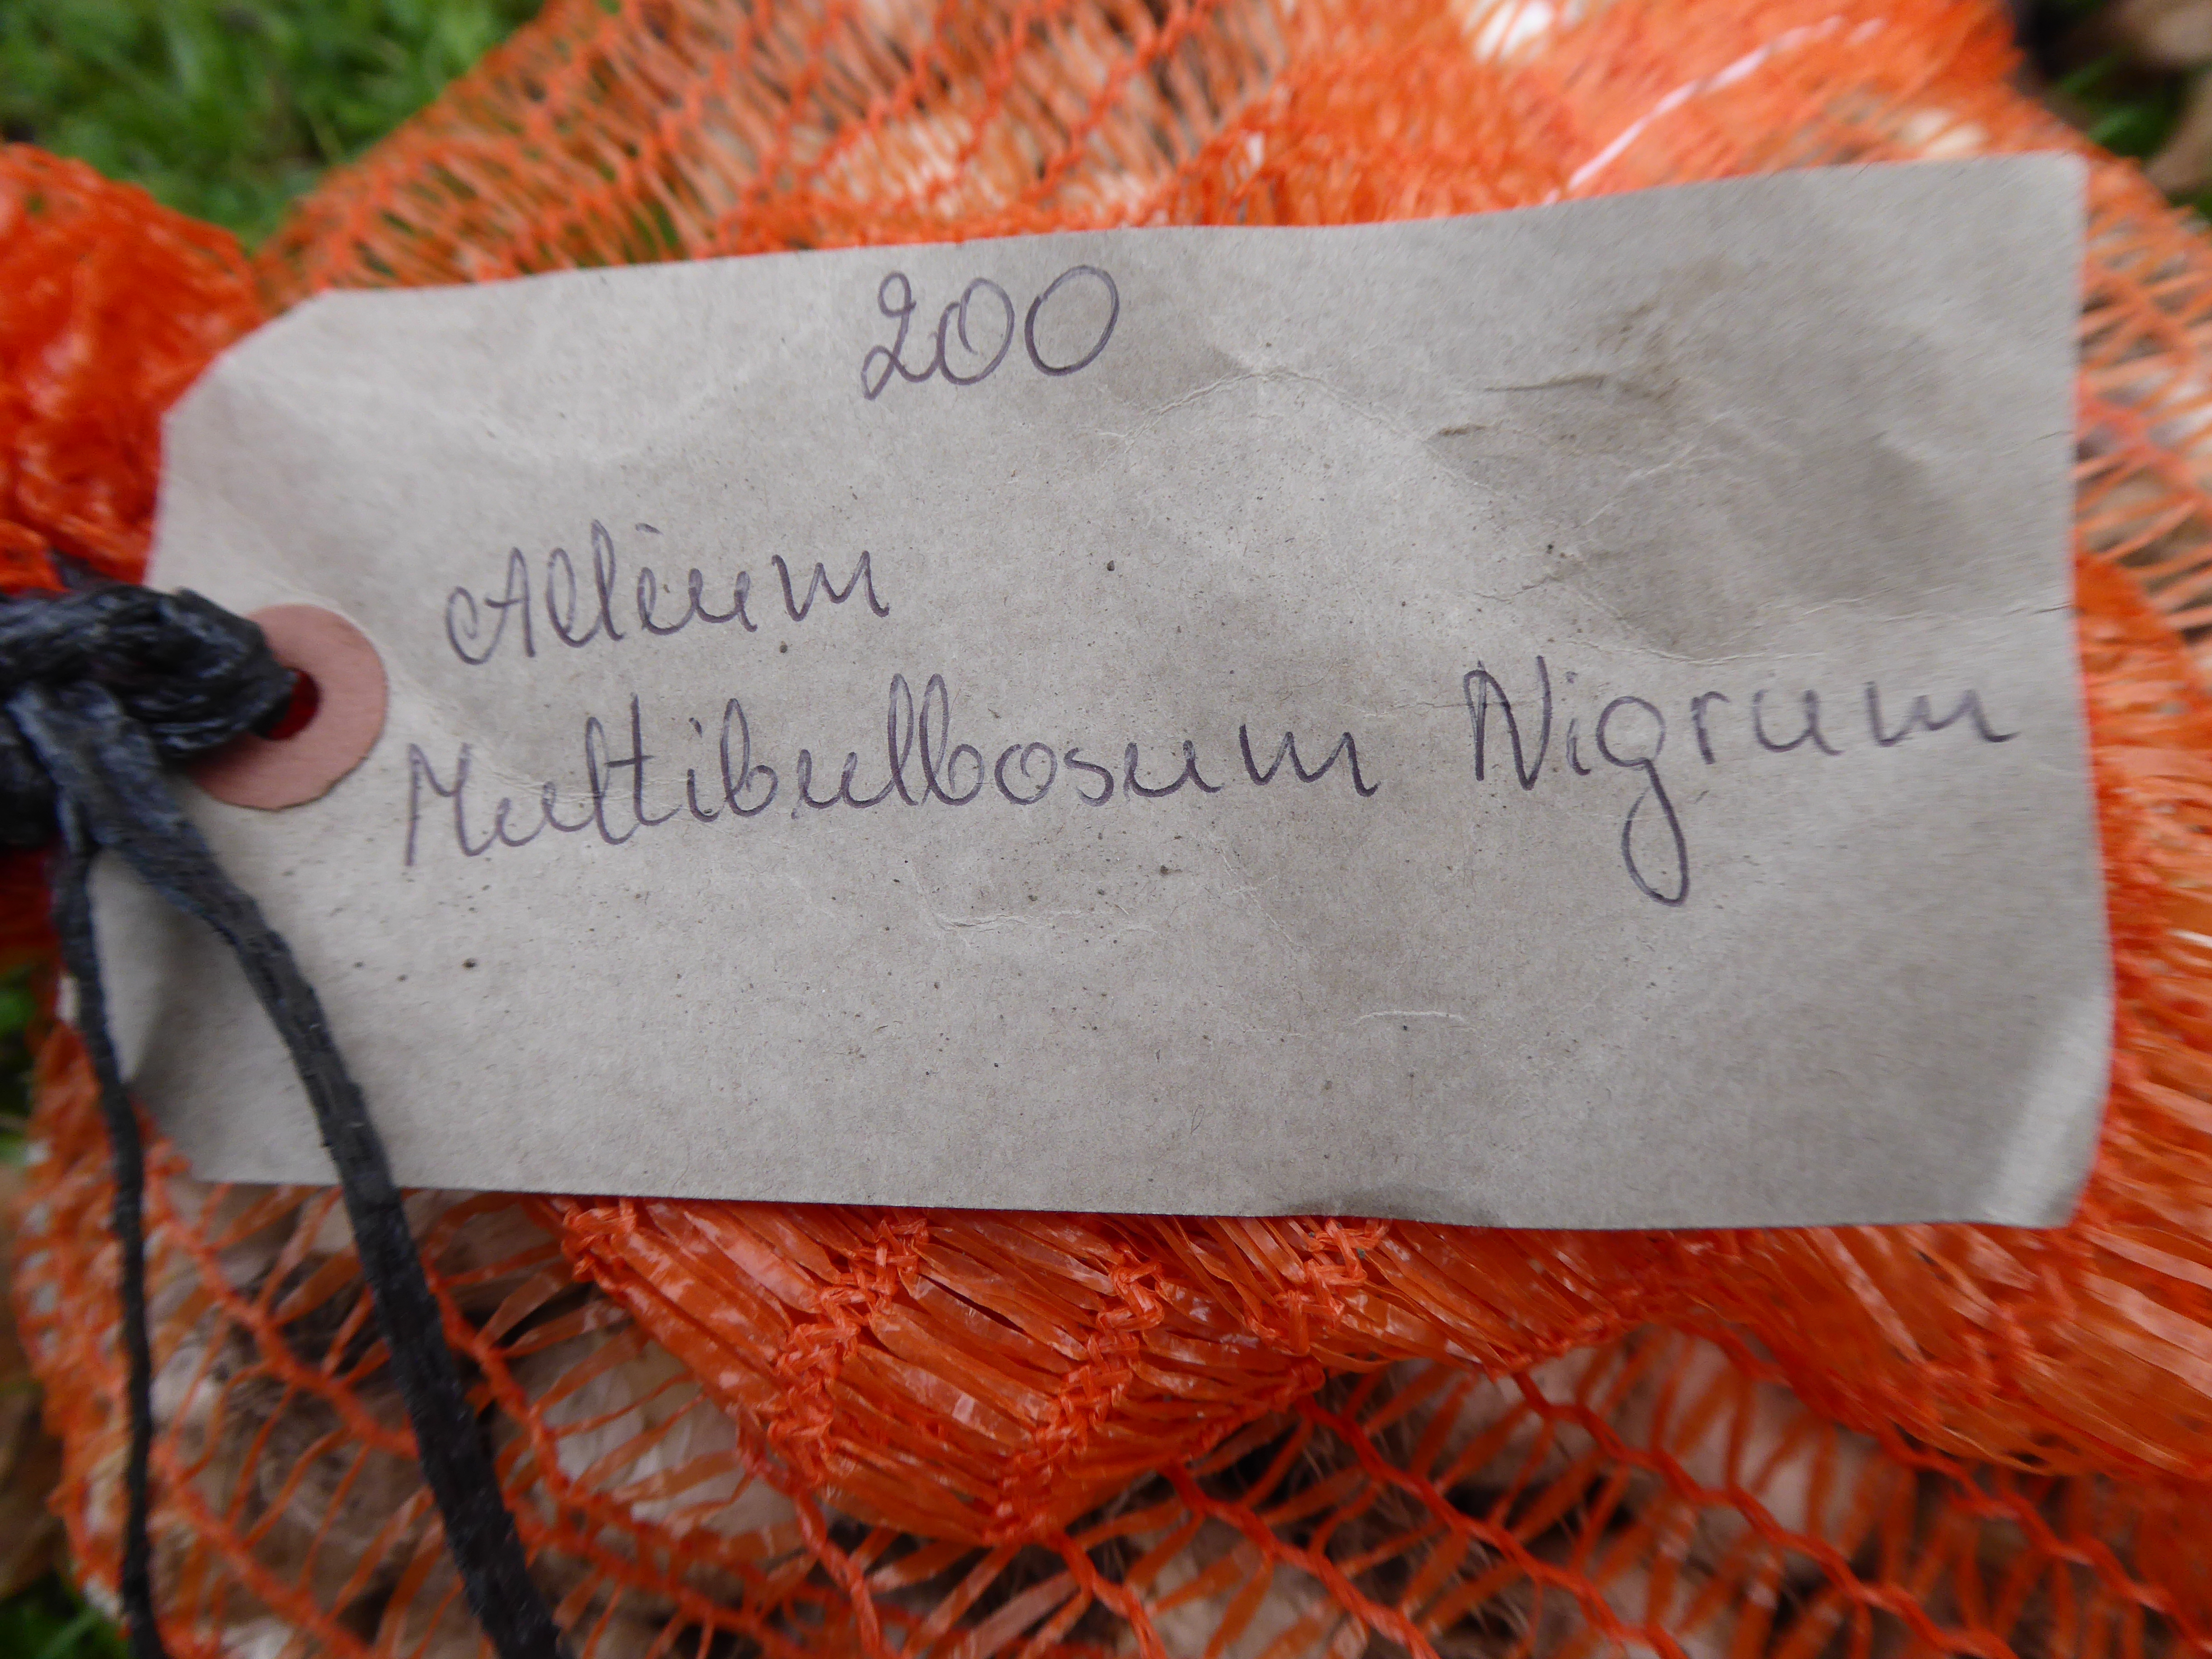 200
Allium
Multibulbosum Nigrum